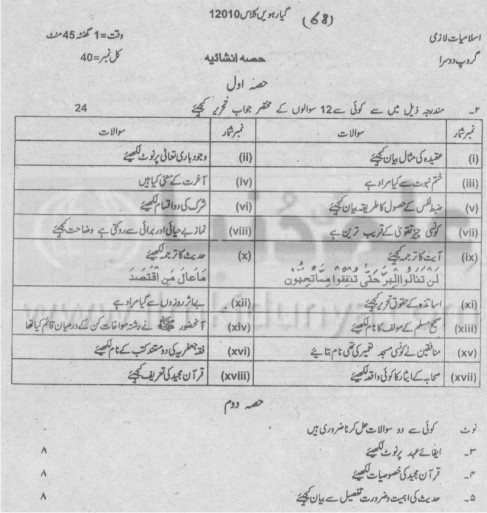 (68) گیارہویں کلاس 12010
اسلامیات لازمی وقت=1 گھنٹہ 45 منٹ
گروپ دوسرا حصہ انشائیہ کل نمبر=40
حصہ اول
۲۔ مندرجہ ذیل میں سے کوئی سے 12 سوالوں کے مختصر جواب تحریر کیجئے 24
نمبر شمار سوالات نمبر شمار سوالات
(i) عقیدہ کی مثال بیان کیجئے (ii) وجود باری تعالیٰ پر نوٹ لکھیئے
(iii) ختم نبوت سے کیا مراد ہے (iv) آخرت کے معنی کیا ہیں
(v) ضبط نفس کے حصول کا طریقہ بیان کیجئے (vi) شرک کی دو اقسام لکھیئے
(vii) کونسی چیز تقویٰ کے قریب ترین ہے (viii) نماز بے حیائی اور برائی سے روکتی ہے وضاحت کیجئے
(ix) آیت کا ترجمہ کیجئے (x) حدیث کا ترجمہ لکھیئے
لَن تَنَالُوا الْبِرَّ حَتّٰی تُنفِقُوا مِمَّا تُحِبُّونَ مَا عَالَ مَنِ اقْتَصَدَ
(xi) اساتذہ کے حقوق تحریر کیجئے (xii) بے اثر روزوں سے کیا مراد ہے
(xiii) صحیح مسلم کے مولف کا نام لکھیئے (xiv) آنحضور ﷺ نے رشتہ مواخات کن کے درمیان قائم کیا تھا
(xv) منافقین نے کونسی مسجد تعمیر کی تھی نام بتایئے (xvi) فقہ جعفریہ کی دو مستند کتب کے نام لکھیئے
(xvii) صحابہ کے ایثار کا کوئی واقعہ لکھیئے (xviii) قرآن مجید کی تعریف کیجئے
حصہ دوم
نوٹ کوئی سے دو سوالات حل کرنا ضروری ہیں
۳۔ ایفائے عہد پر نوٹ لکھیئے ۸
۴۔ قرآن مجید کی خصوصیات لکھیئے ۸
۵۔ حدیث کی اہمیت و ضرورت تفصیل سے بیان کیجئے ۸